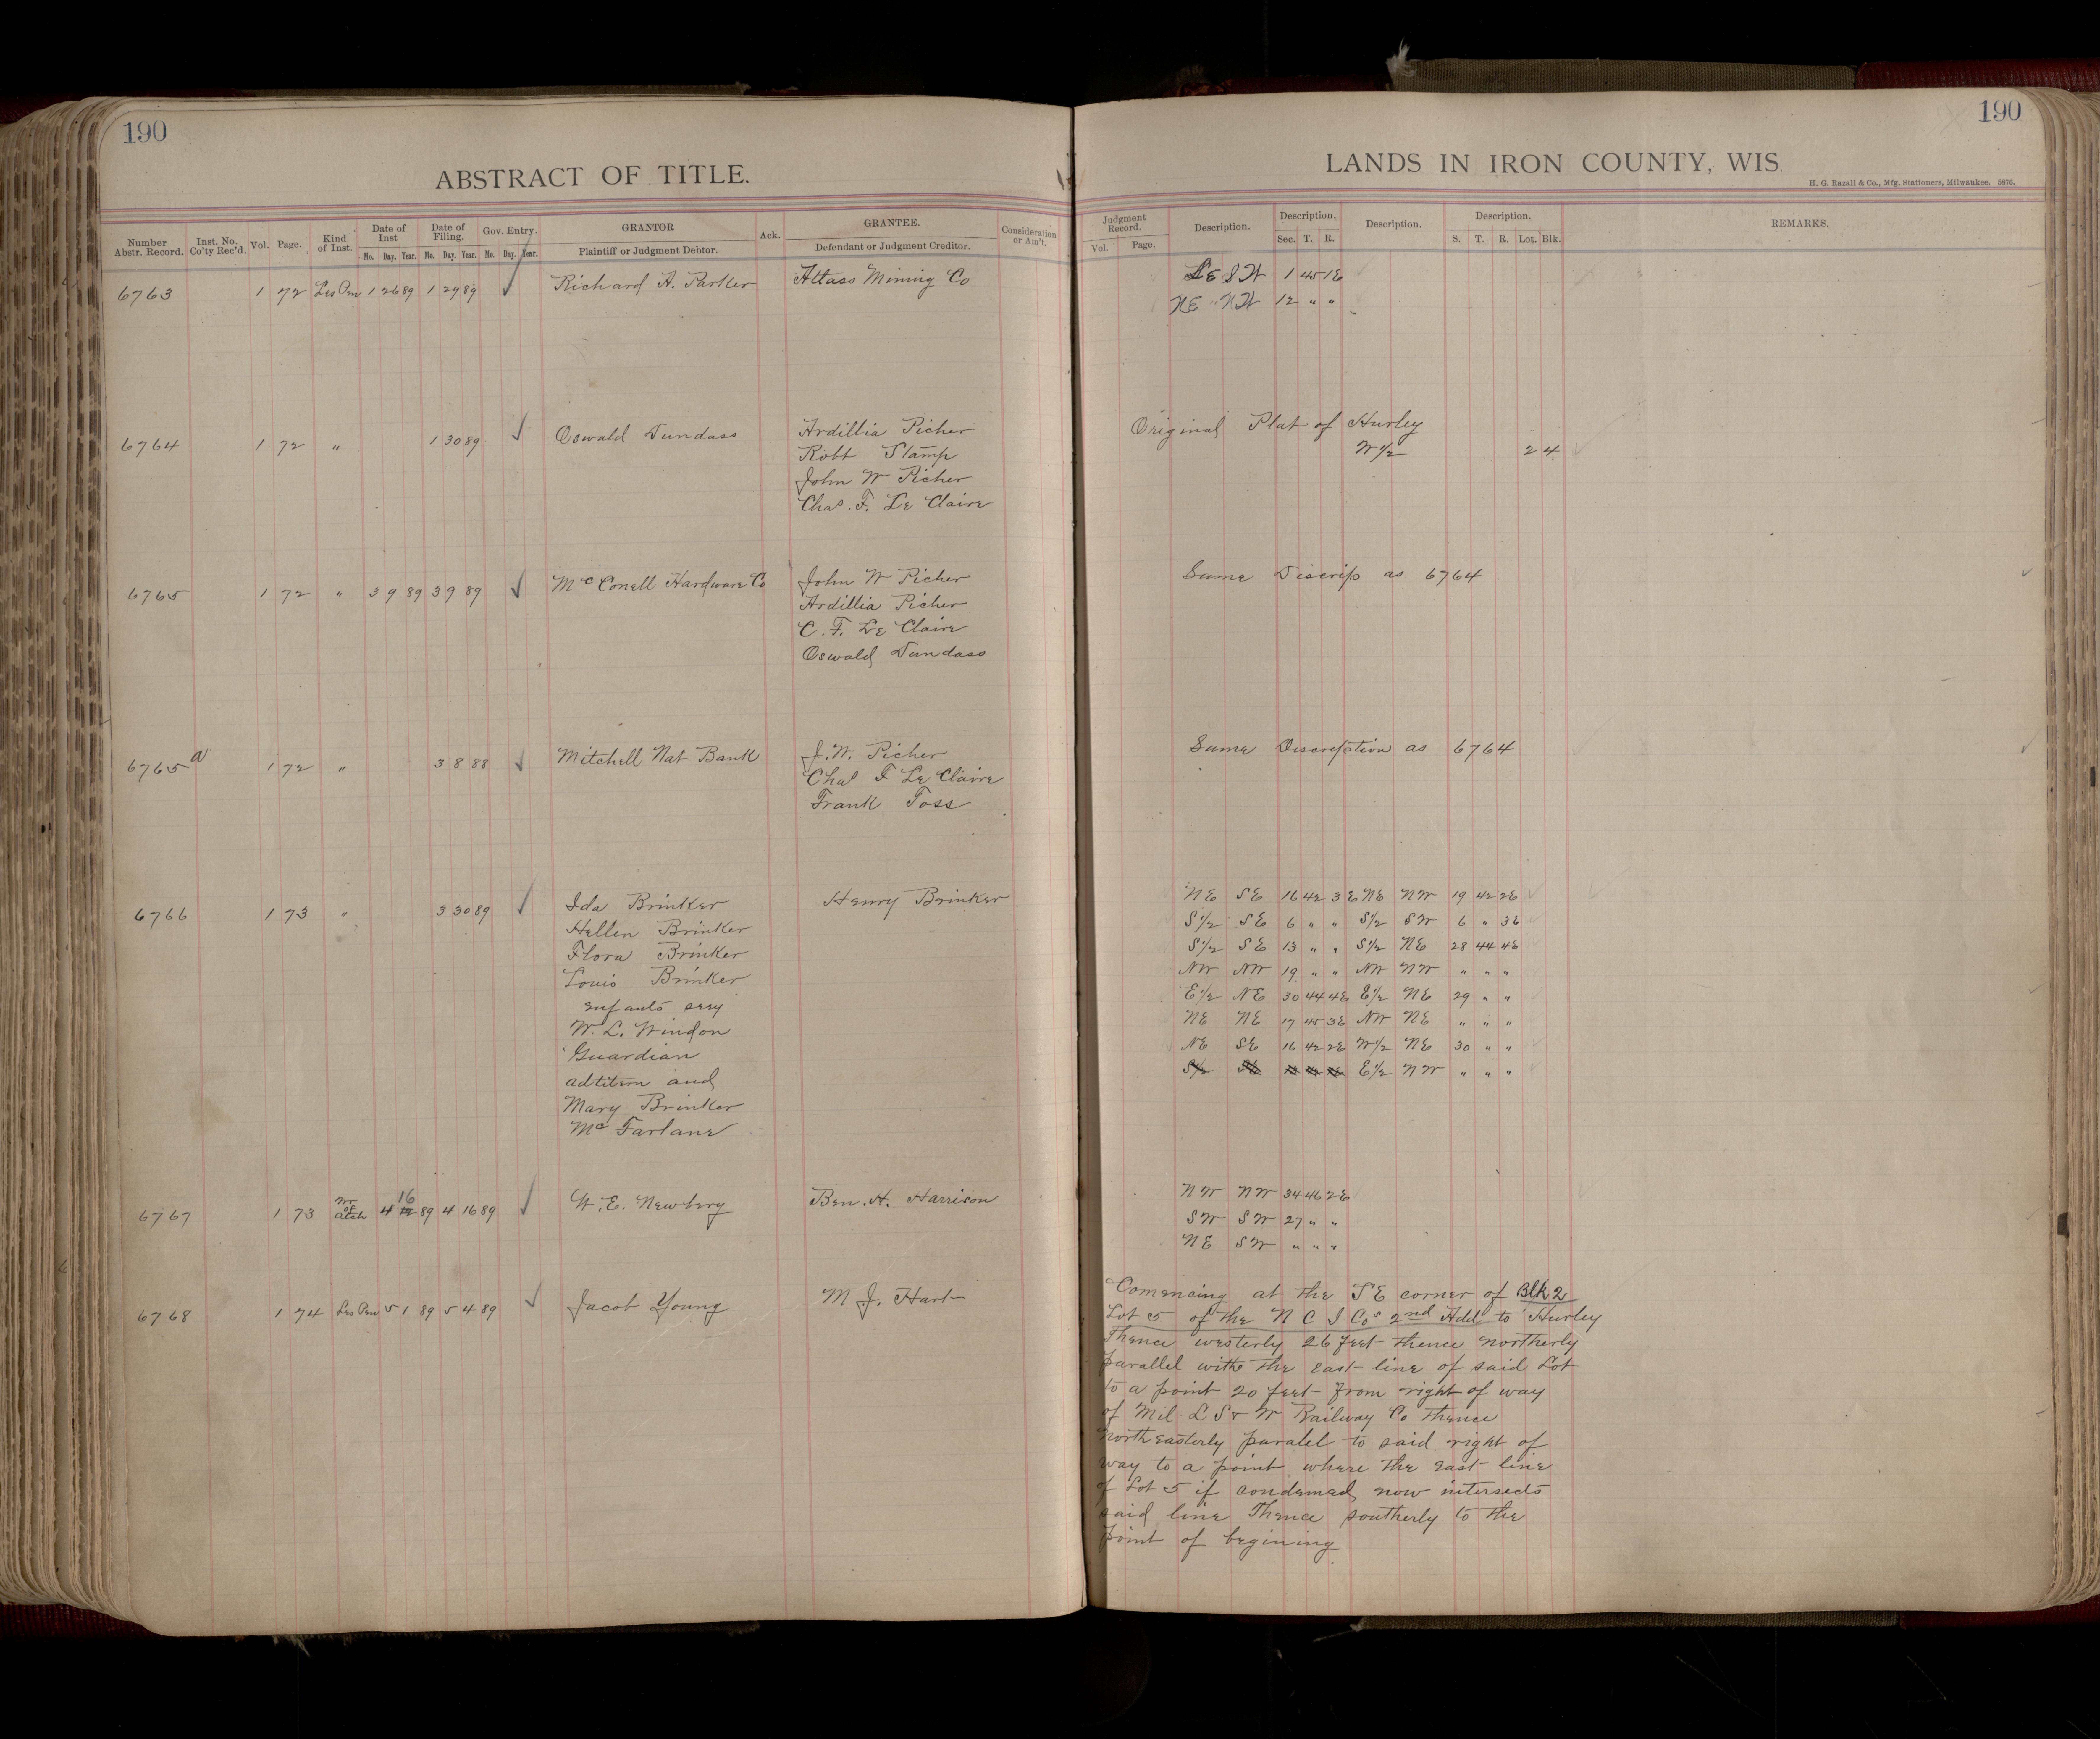 190
ABSTRACT OF TITLE.
Number Abstr. Record. Inst. No. Co'ty Rec'd. Vol. Page. Kind of Inst. Date of Inst Mo. Day. Year. Date of Filing. Mo. Day. Year. Gov. Entry. Mo. Day. Year. GRANTOR Plaintiff or Judgment Debtor. Ack. GRANTEE. Defendant or Judgment Creditor. Consideration or Am't.
6763 1 72 Les Pen 1 26 89 1 29 89 ✓ Richard A. Parker Attass Mining Co
6764 1 72 " 1 30 89 ✓ Oswald Dundass Ardillia Picher
Robt Stamp
John W Picher
Chas. F. Le Claire
6765 1 72 " 3 9 89 3 9 89 ✓ Mc Conell Hardware Co John W Picher
Ardillia Picher
C. F. Le Claire
Oswald Dundass
6765 a 1 72 " 3 8 88 ✓ Mitchell Nat Bank J. W. Picher
Chas F Le Claire
Frank Foss
6766 1 73 " 3 30 89 ✓ Ida Brinker Henry Brinker
Hellen Brinker
Flora Brinker
Louis Brinker
W. L. Windon
Guardian
adtitem and
Mary Brinker
Mc Farlane
6767 1 73 Wr of Atch 4 16 89 4 16 89 ✓ W. E. Newbery Ben. H. Harrison
6768 1 74 Les Pen 5 1 89 5 4 89 ✓ Jacob Young M J. Hart
190
LANDS IN IRON COUNTY, WIS.
H. G. Razall & Co., Mfg. Stationers, Milwaukee. 5876.
Judgment Record. Vol. Page. Description. Description. Sec. T. R. Description. Description. S. T. R. Lot. Blk. REMARKS.
SE SW 1 45 1E
NE " NW 12 " "
Original Plat of Hurley
W 1/2 2 4
Same Discrip as 6764
Same Discreption as 6764
NE SE 16 42 3E NE NW 19 42 2E
S1/2 SE 6 " " S1/2 SW 6 " 3E
S1/2 SE 13 " " S1/2 NE 28 44 4E
NW NW 19 " " NW NW " " "
E1/2 NE 30 44 4E E1/2 NE 29 " "
NE NE 17 45 3E NW NE " " "
NE SE 16 42 2E W1/2 NE 30 " "
S1/2 SE E1/2 NW " " "
NW NW 34 46 2E
SW SW 27 " "
NE SW " " "
Commencing at the SE corner of Blk 2
Lot 5 of the N C I Cos 2nd Add to Hurley
Thence westerly 26 feet thence northerly
parallel withe the east line of said Lot
to a point 20 feet from right of way
of Mil L S & W Railway Co thence
north easterly paralel to said right of
way to a point where the east line
of Lot 5 if condemed now intersects
said line Thence southerly to the
point of begining